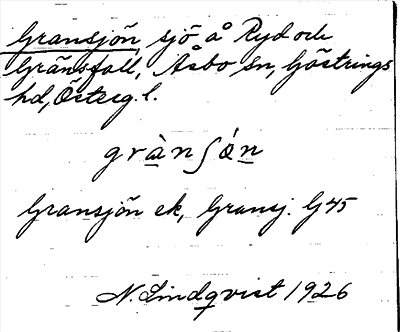 Gransjön, sjö å Ryd och
Gränsfall, Åsbo sn, Göstrings
hd, Österg. l.
grànʃǿn
Gransjön ek, Gransj. G45
N. Lindqvist 1926